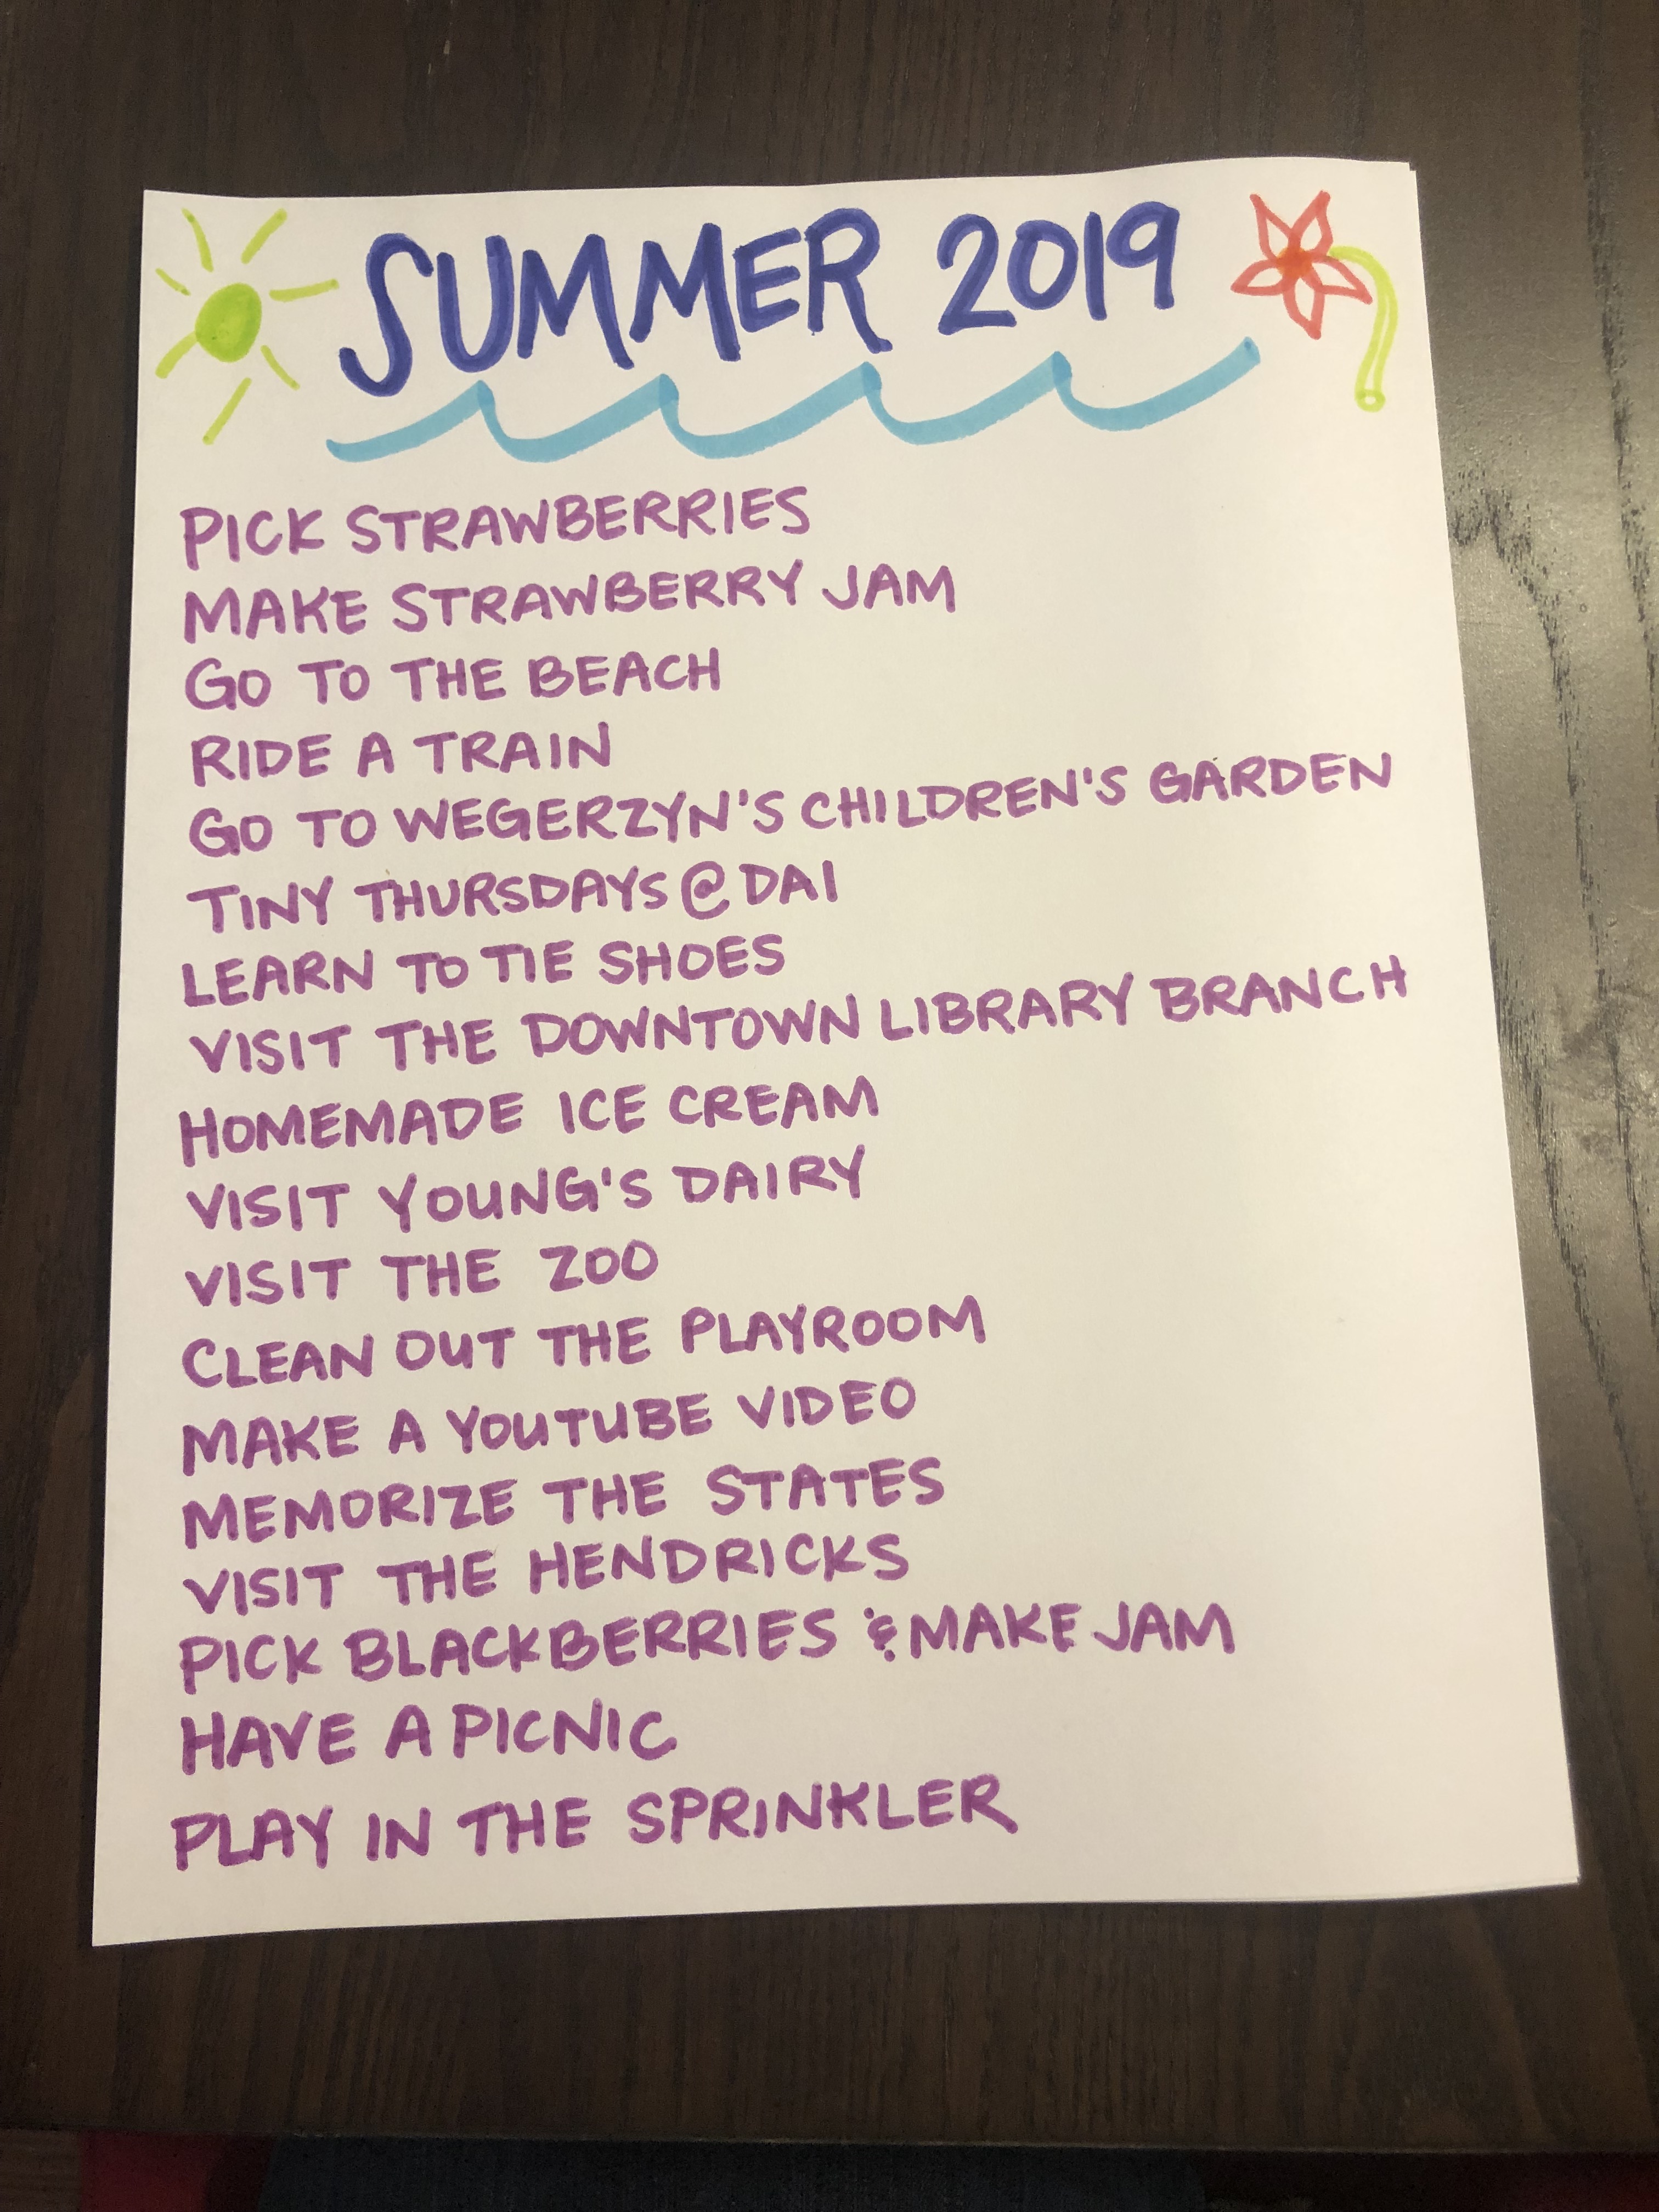 SUMMER 2019
PICK STRAWBERRIES
MAKE STRAWBERRY JAM
GO TO THE BEACH
RIDE A TRAIN
GO TO WEGERZYN'S CHILDREN'S GARDEN
TINY THURSDAYS @ DAI
LEARN TO TIE SHOES
VISIT THE DOWNTOWN LIBRARY BRANCH
HOMEMADE ICE CREAM
VISIT YOUNG'S DAIRY
VISIT THE ZOO
CLEAN OUT THE PLAYROOM
MAKE A YOUTUBE VIDEO
MEMORIZE THE STATES
VISIT THE HENDRICKS
PICK BLACKBERRIES & MAKE JAM
HAVE A PICNIC
PLAY IN THE SPRINKLER